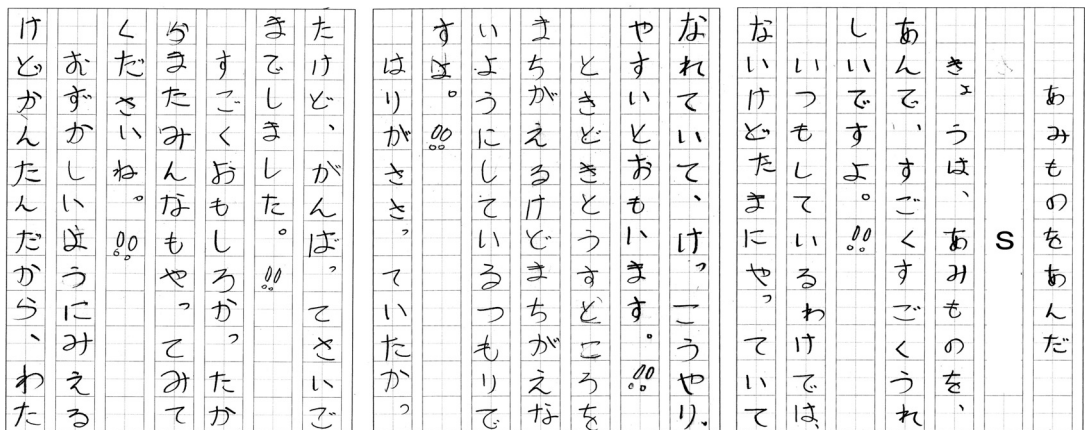 あみものをあんだ
S
きょうは、あみものを、
あんで、すごくすごくうれ
しいですよ。!!
いつもしているわけでは、
ないけどたまにやっていて
なれていて、けっこうやり、
やすいとおもいます。!!
ときどきとうすどころを
まちがえるけどまちがえな
いようにしているつもりで
すよ。!!
はりがささっていたかっ
たけど、がんばってさいご
までしました。!!
すごくおもしろかったか
らまたみんなもやってみて
くださいね。!!
おずかしいようにみえる
けどかんたんだから、わた